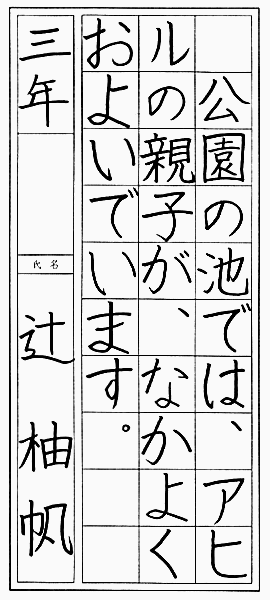 公園の池では、アヒ
ルの親子が、なかよく
およいでいます。
三年
氏名
辻 柚帆